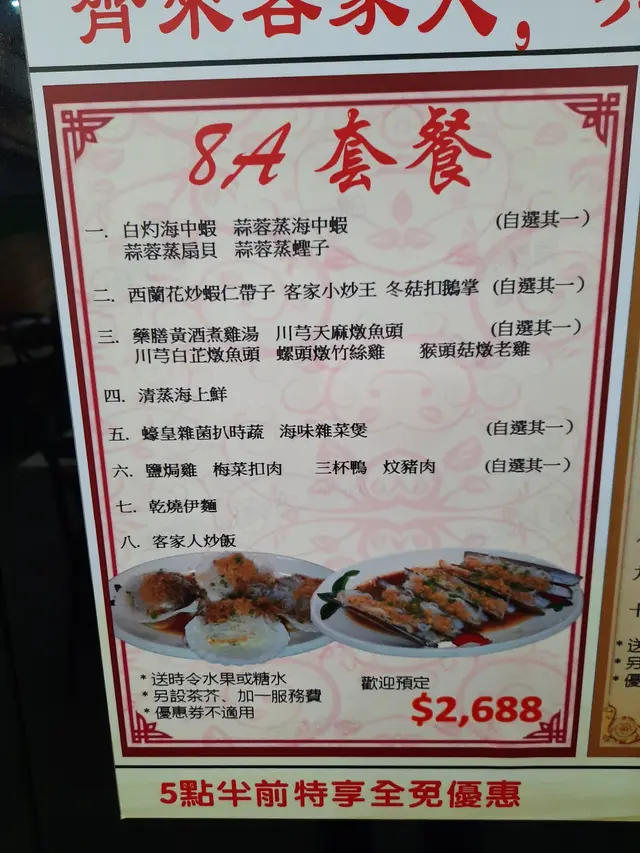 齊來客家人，
8A 套餐
一. 白灼海中蝦 蒜蓉蒸海中蝦 (自選其一)
蒜蓉蒸扇貝 蒜蓉蒸蟶子
二. 西蘭花炒蝦仁帶子 客家小炒王 冬菇扣鵝掌 (自選其一)
三. 藥膳黃酒煮雞湯 川芎天麻燉魚頭 (自選其一)
川芎白芷燉魚頭 螺頭燉竹絲雞 猴頭菇燉老雞
四. 清蒸海上鮮
五. 蠔皇雜菌扒時蔬 海味雜菜煲 (自選其一)
六. 鹽焗雞 梅菜扣肉 三杯鴨 炆豬肉 (自選其一)
七. 乾燒伊麵
八. 客家人炒飯
* 送時令水果或糖水 歡迎預定
* 另設茶芥、加一服務費
* 優惠券不適用
$2,688
5點半前特享全免優惠
* 送
* 另
* 優